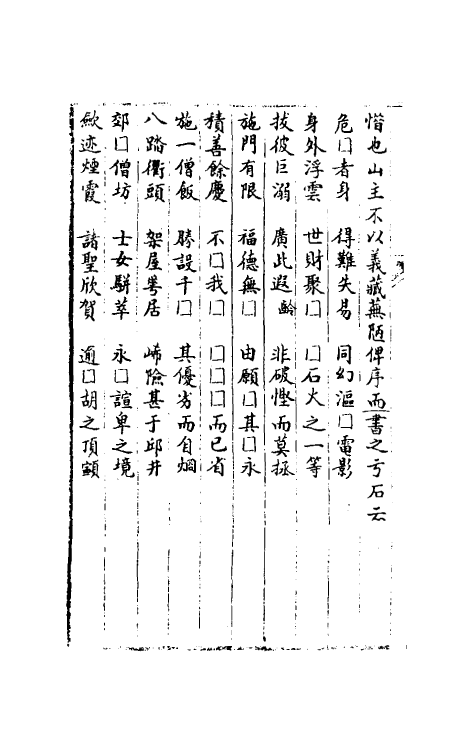 惜也山主不以義藏蕪陋俾序而書之亏石云
危□者身　得難失易　同幻漚□電影
身外浮雲　世財聚□　□石火之一等
拔彼巨溺　廣此遐齡　非破慳而莫拯
施門有限　福德無□　由願□其□永
積善餘慶　不□我□　□□□而已省
施一僧飯　勝設千□　其優劣而自烱
八踏衢頭　架屋爰居　崄險甚于邱井
郊□僧坊　士女駢萃　永□諠卑之境
歛迹煙霞　諸聖欣賀　逾□胡之頂顙